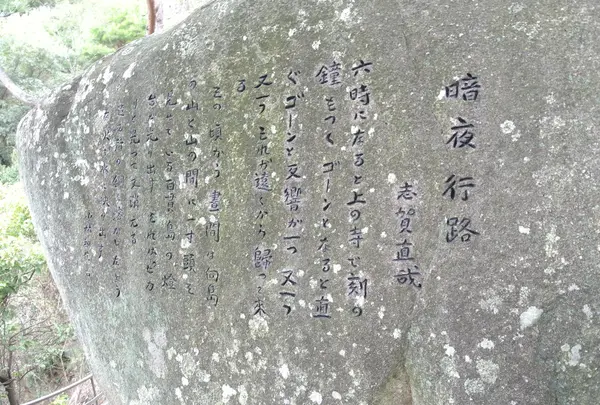 暗夜行路
志賀直哉
六時になると上の寺で刻の
鐘をつく ゴーンとなると直
ぐゴーンと反響が一つ 又一つ
又一つ それが遠くから帰って来
る
其頃から 昼間は向島
の山と山の間に一寸頭を
見せている百貫島の燈
台が光り出す それはピカ
りと光って又消える